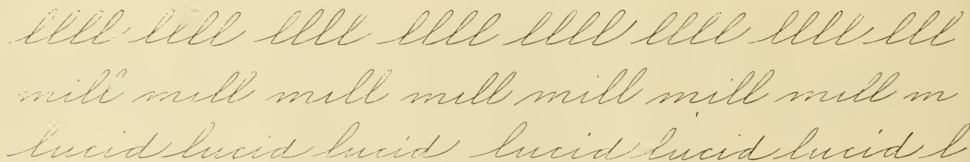 llll llll llll llll llll llll llll lll
mill mill mill mill mill mill mill m
lucid lucid lucid lucid lucid lucid lucid l